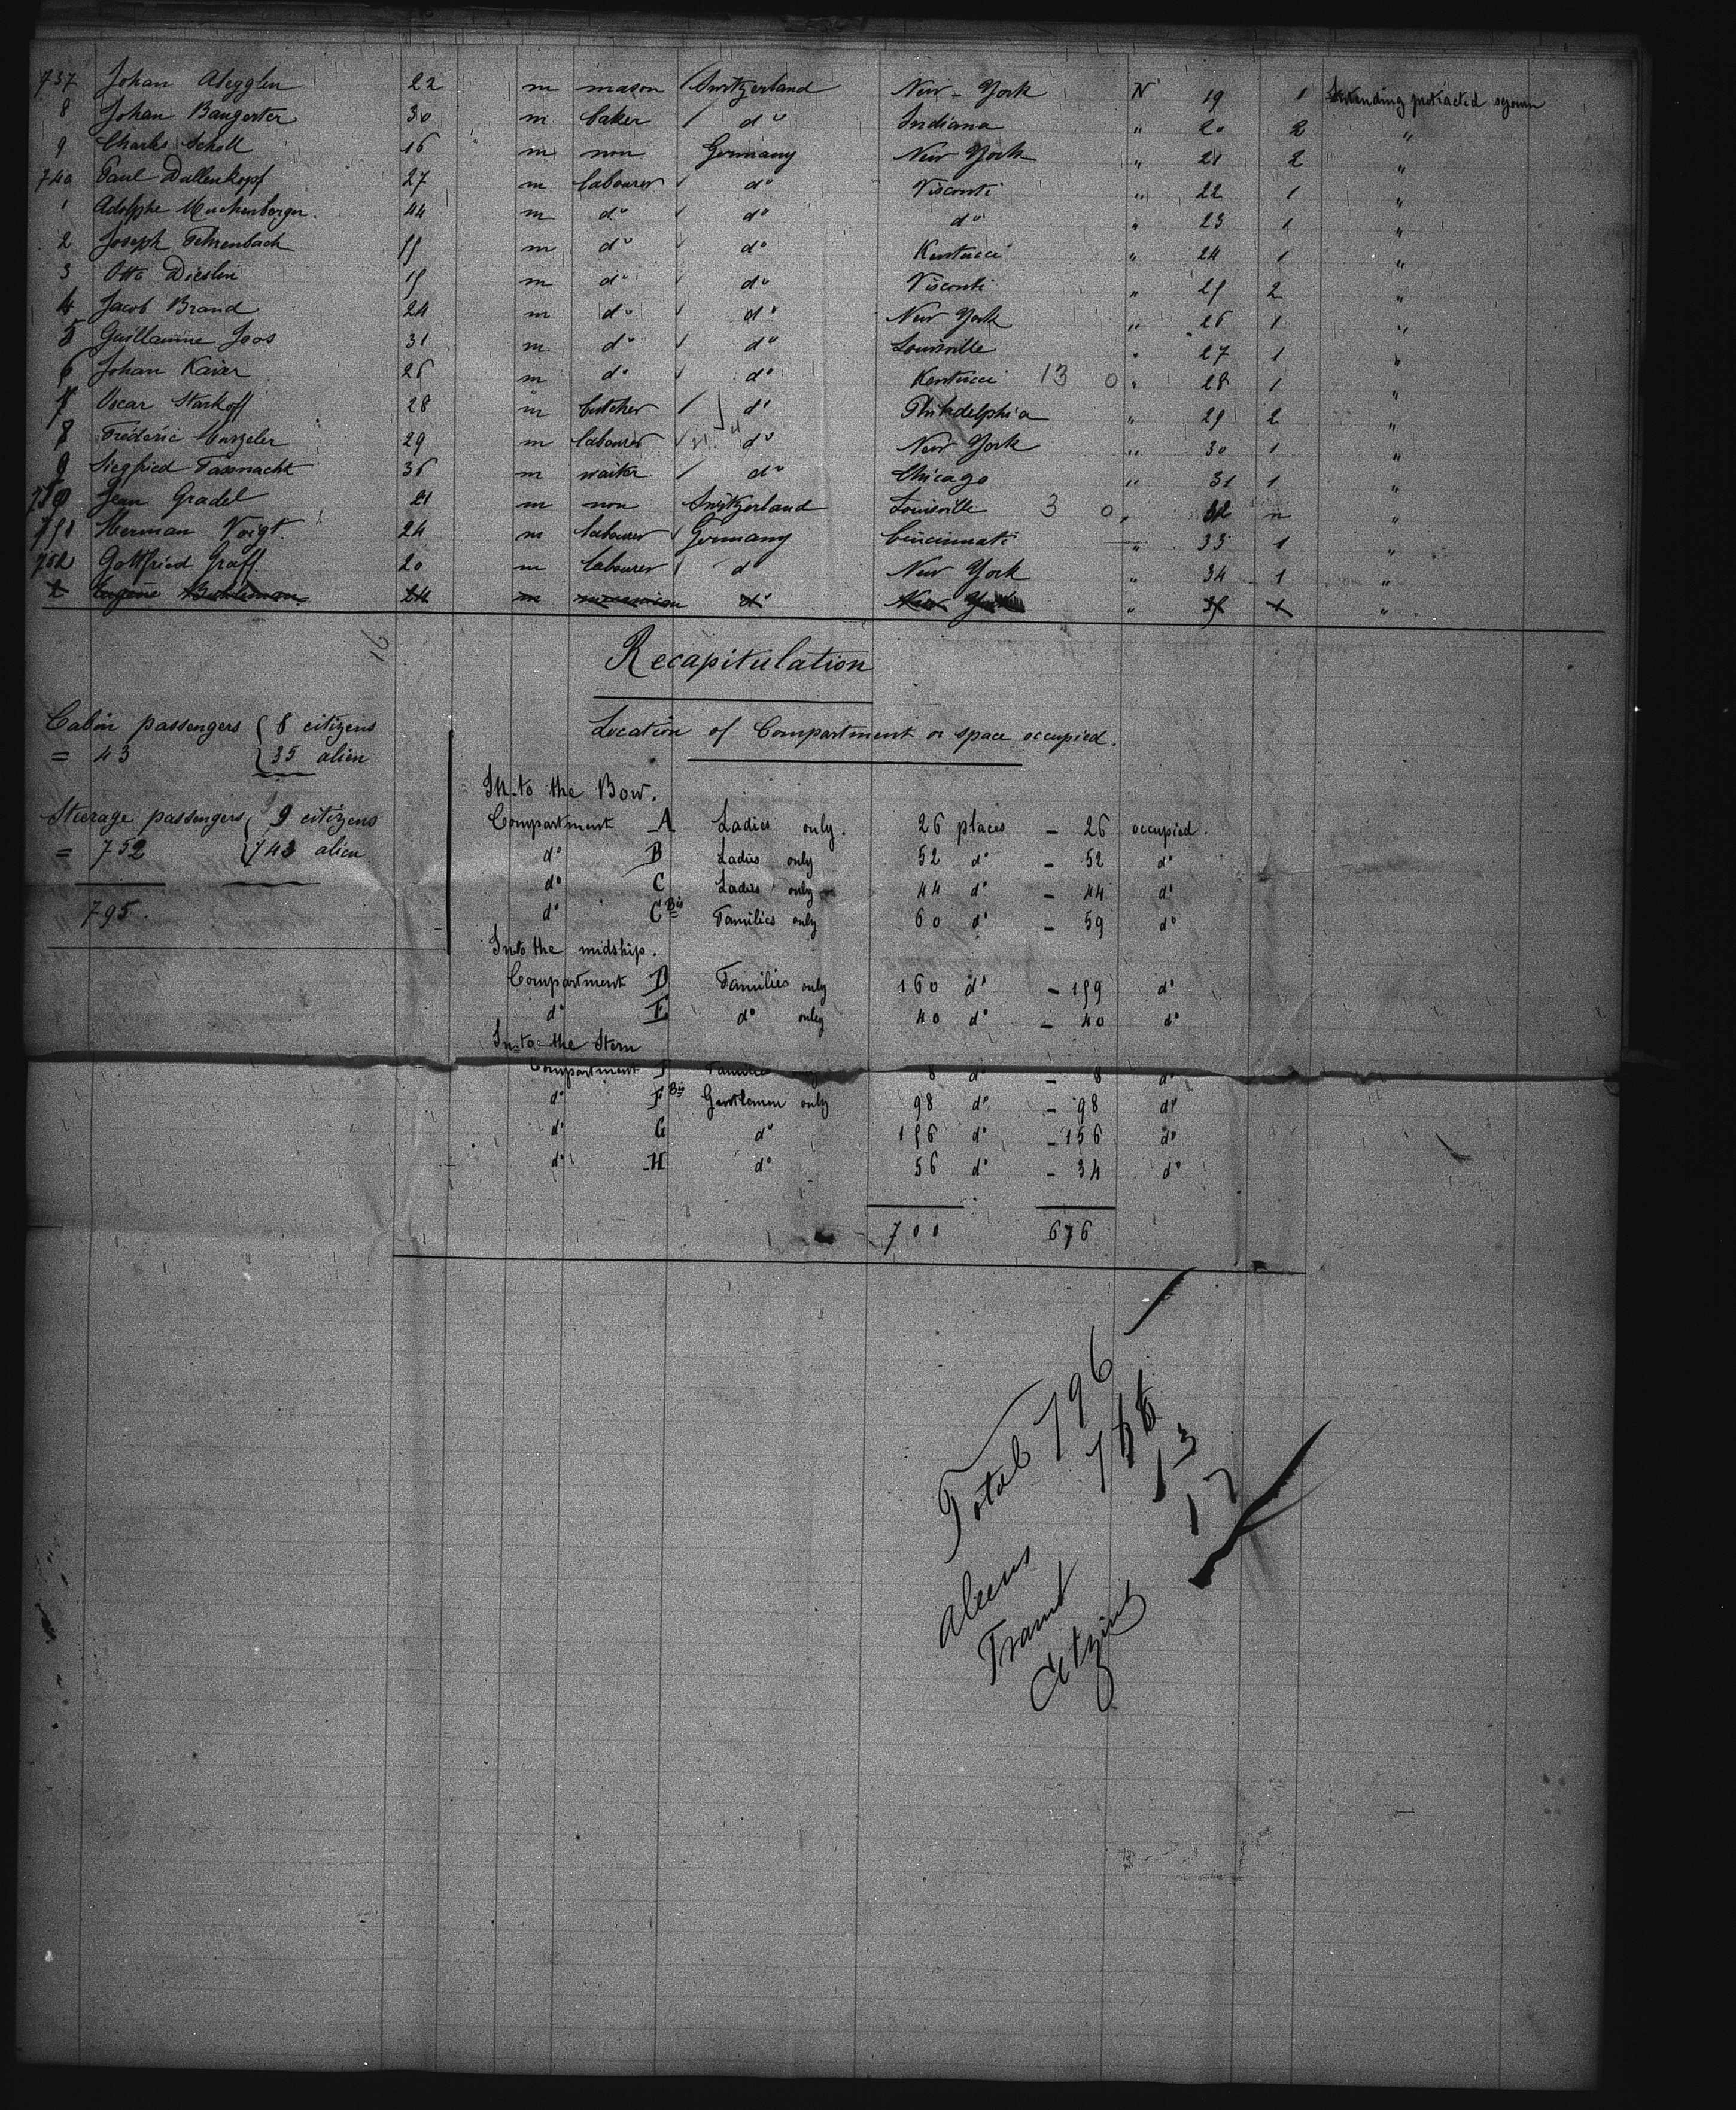 737 Johan Abegglen 22 m mason / Switzerland New-York N 19 1 Intending protracted sejourn
8 Johan Bangerter 30 m baker / do Indiana " 20 2 "
9 Charles Scholl 16 m non Germany New York " 21 2 "
740 Paul Dullenkopf 27 m labourer √ do Visconti " 22 1 "
1 Adolphe Muckenberger. 44 m do √ do do " 23 1 "
2 Joseph Fehrenbach 55 m do √ do Kentucci " 24 1 "
3 Otto Dieslin 15 m do √ do Visconti " 25 2 "
4 Jacob Brand 24 m do √ do New York " 26 1 "
5 Guillaume Joos 31 m do √ do Louisville " 27 1 "
6 Johan Kaiser 26 m do √ do Kentucci 13 0 " 28 1 "
7 Oscar Starkoff 28 m butcher / do Philadelphia " 29 2 "
8 Frédéric 29 m labourer √ do New York " 30 1 "
9 Siegfried Fassnacht 36 m waiter / do Chicago " 31 1 "
750 Jean Gradel 21 m non Switzerland Louisville 3 0 " 32 n "
751 Herman Voigt. 24 m labourer √ Germany Cincinnati " 33 1 "
752 Gottfried Graff 20 m labourer / do New York " 34 1 "
Eugène 24 m do New York " 35 1 "
Recapitulation
Cabin passengers { 8 citizens
= 43 { 35 alien
Steerage passengers { 9 citizens
= 752 { 743 alien
795.
Location of Compartment or space occupied.
In to the Bow.
Compartment A Ladies only. 26 places - 26 occupied.
do B Ladies only 52 do - 52 do
do C Ladies only 44 do - 44 do
do C Bis Families only 60 do - 59 do
Into the midship.
Compartment D Families only 160 do - 159 do
do E do only 40 do - 40 do
Into the Stern
Compartment F Families 8 do - 8 do
do F Bis Gentlemen only 98 do - 98 do
do G do 156 do - 156 do
do H do 56 do - 34 do
700 676
Total 796
Aleens
Transit 13
Citzins 17